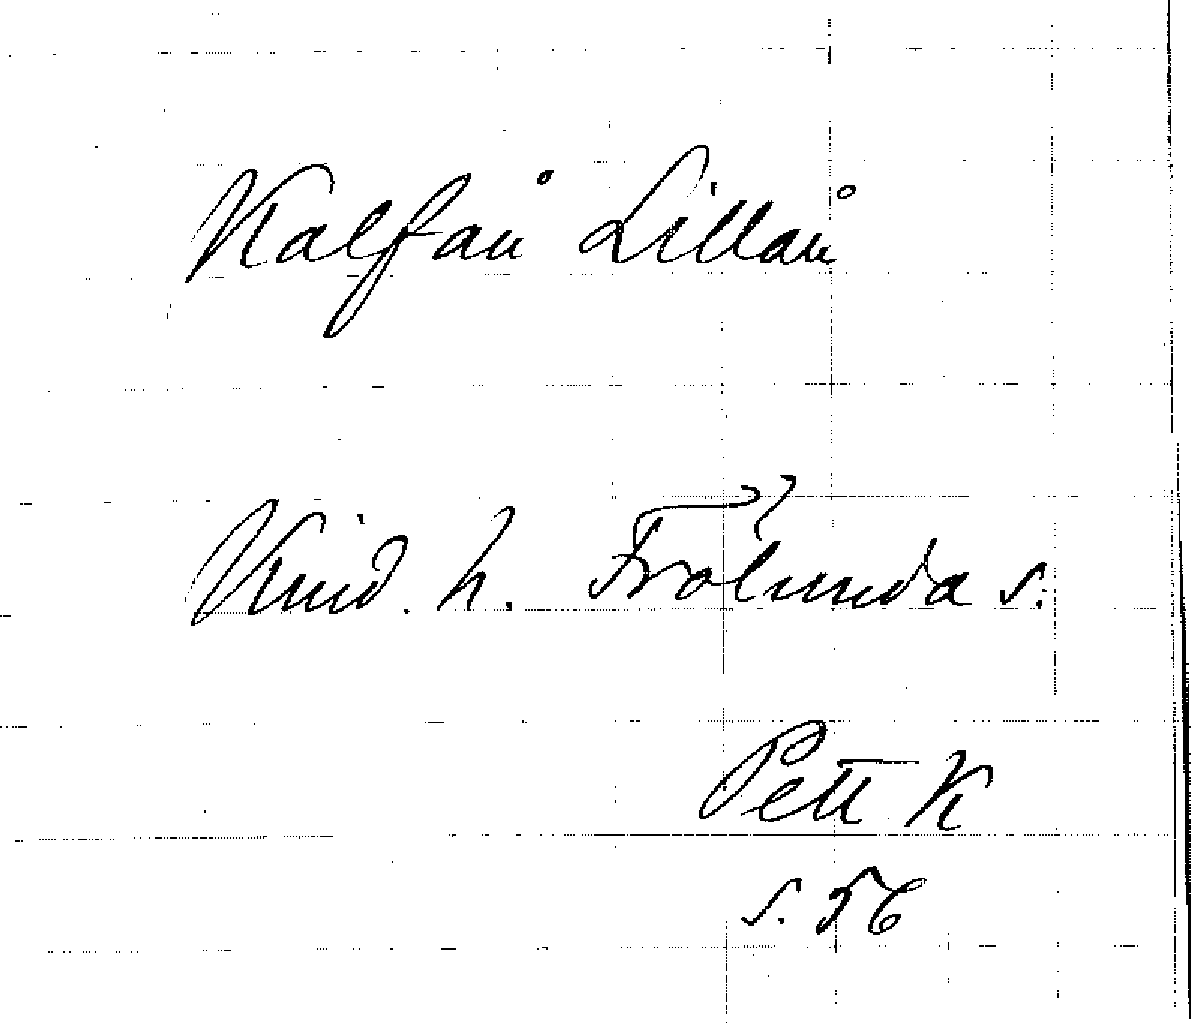 Kalfån Lillån
Kind. h. Frölunda s.
Pett K
s. 56